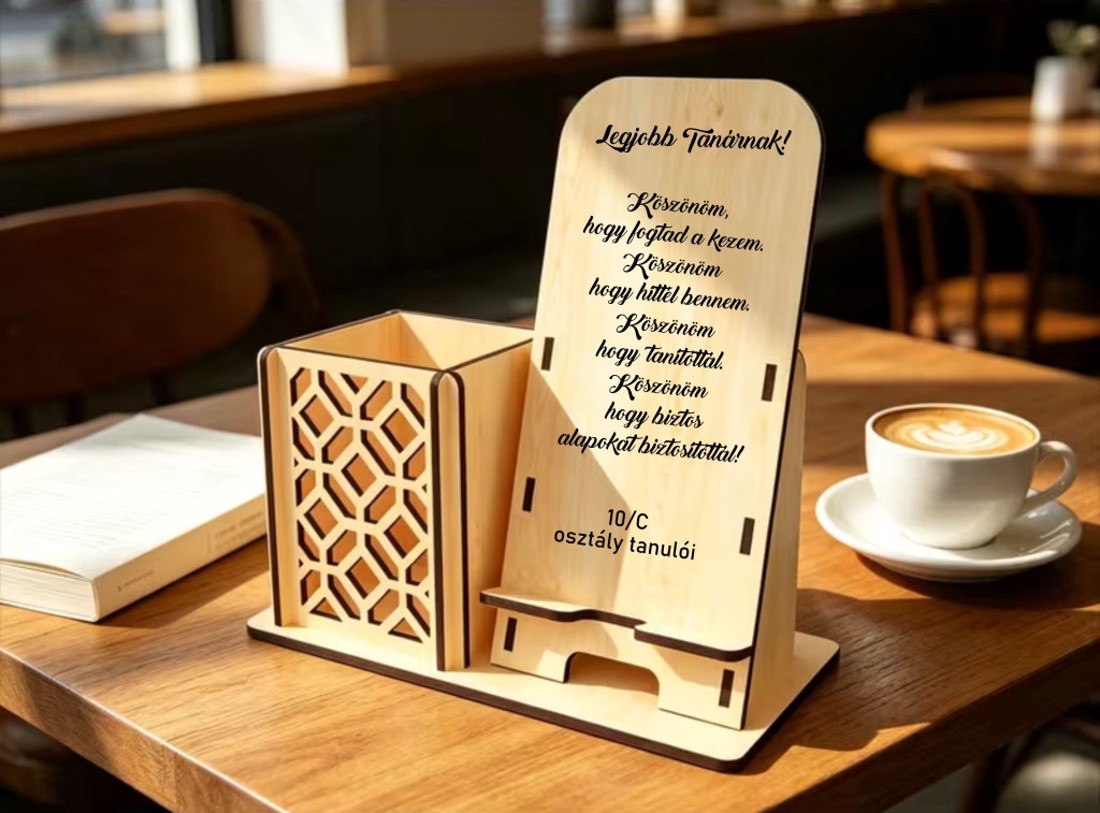 Legjobb Tanárnak!
Köszönöm,
hogy fogtad a kezem.
Köszönöm
hogy hittél bennem.
Köszönöm
hogy tanítottál.
Köszönöm
hogy biztos
alapokat biztosítottál!
10/C
osztály tanulói